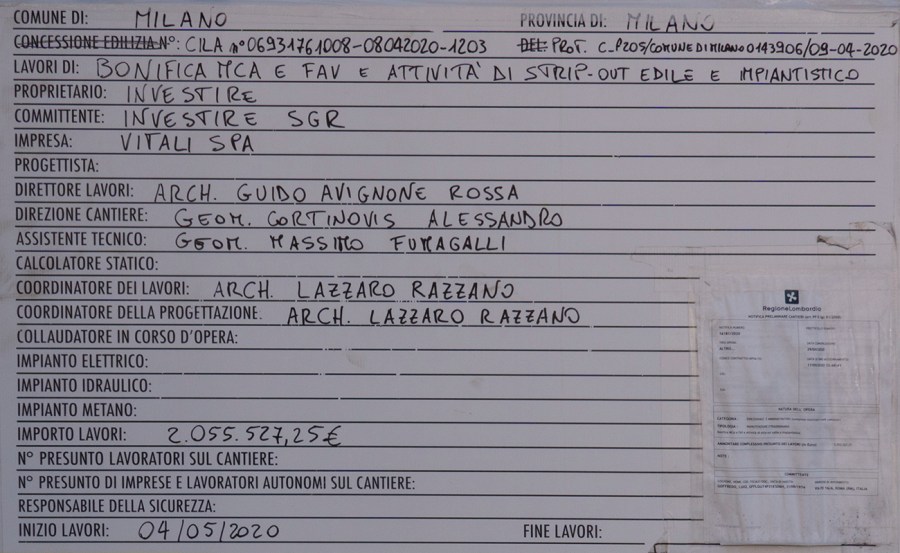 COMUNE DI: MILANO PROVINCIA DI: MILANO
CONCESSIONE EDILIZIA N°: CILA n°06931761008-08042020-1203 DEL: PROT. C_P205/COMUNE DI MILANO 0143906/09-04-2020
LAVORI DI: BONIFICA MCA E FAV E ATTIVITA' DI STRIP-OUT EDILE E IMPIANTISTICO
PROPRIETARIO: INVESTIRE
COMMITTENTE: INVESTIRE SGR
IMPRESA: VITALI SPA
PROGETTISTA:
DIRETTORE LAVORI: ARCH. GUIDO AVIGNONE ROSSA
DIREZIONE CANTIERE: GEOM. CORTINOVIS ALESSANDRO
ASSISTENTE TECNICO: GEOM. MASSIMO FUMAGALLI
CALCOLATORE STATICO:
COORDINATORE DEI LAVORI: ARCH. LAZZARO RAZZANO
COORDINATORE DELLA PROGETTAZIONE. ARCH. LAZZARO RAZZANO
COLLAUDATORE IN CORSO D'OPERA:
IMPIANTO ELETTRICO:
IMPIANTO IDRAULICO:
IMPIANTO METANO:
IMPORTO LAVORI: 2.055.527,25€
N° PRESUNTO LAVORATORI SUL CANTIERE:
N° PRESUNTO DI IMPRESE E LAVORATORI AUTONOMI SUL CANTIERE:
RESPONSABILE DELLA SICUREZZA:
INIZIO LAVORI: 04/05/2020 FINE LAVORI:
RegioneLombardia